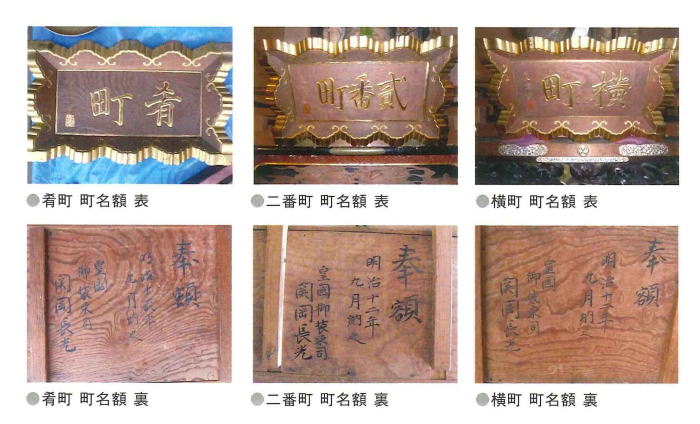 肴町
貳番町
橫町
肴町 町名額 表
二番町 町名額 表
横町 町名額 表
奉額
明治十二年
九月納之
皇国
御装束司
関岡長光
奉額
明治十二年
九月納之
皇國御装束司
関岡長光
奉額
明治十二年
九月納之
皇国
御装束司
関岡長光
肴町 町名額 裏
二番町 町名額 裏
横町 町名額 裏